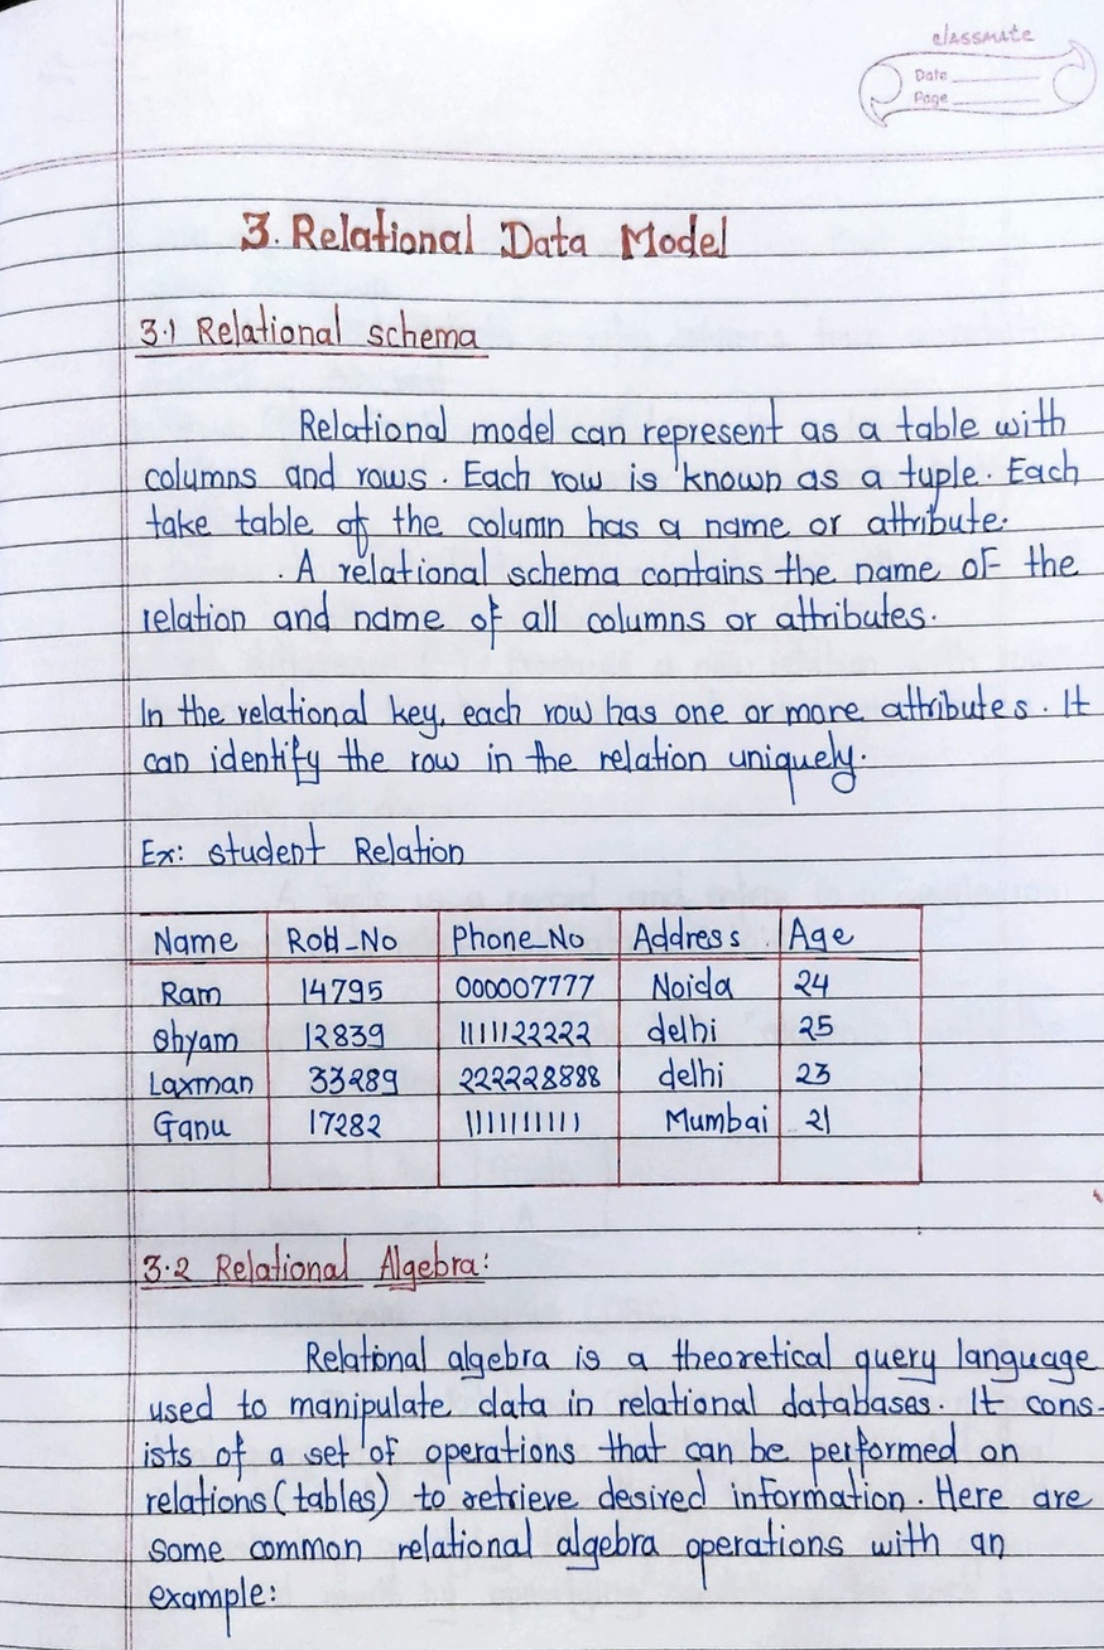 classmate
Date
Page
3. Relational Data Model
3.1 Relational schema
Relational model can represent as a table with
columns and rows. Each row is known as a tuple. Each
take table of the column has a name or attribute.
. A relational schema contains the name of the
relation and name of all columns or attributes.
In the relational key, each row has one or more attributes. It
can identify the row in the relation uniquely.
Ex: student Relation
Name Roll_No Phone_No Address Age
Ram 14795 000007777 Noida 24
Shyam 12839 1111122222 delhi 25
Laxman 33289 222228888 delhi 23
Ganu 17282 Mumbai 21
3.2 Relational Algebra:
Relational algebra is a theoretical query language
used to manipulate data in relational databases. It cons-
ists of a set of operations that can be performed on
relations (tables) to retrieve desired information. Here are
some common relational algebra operations with an
example: